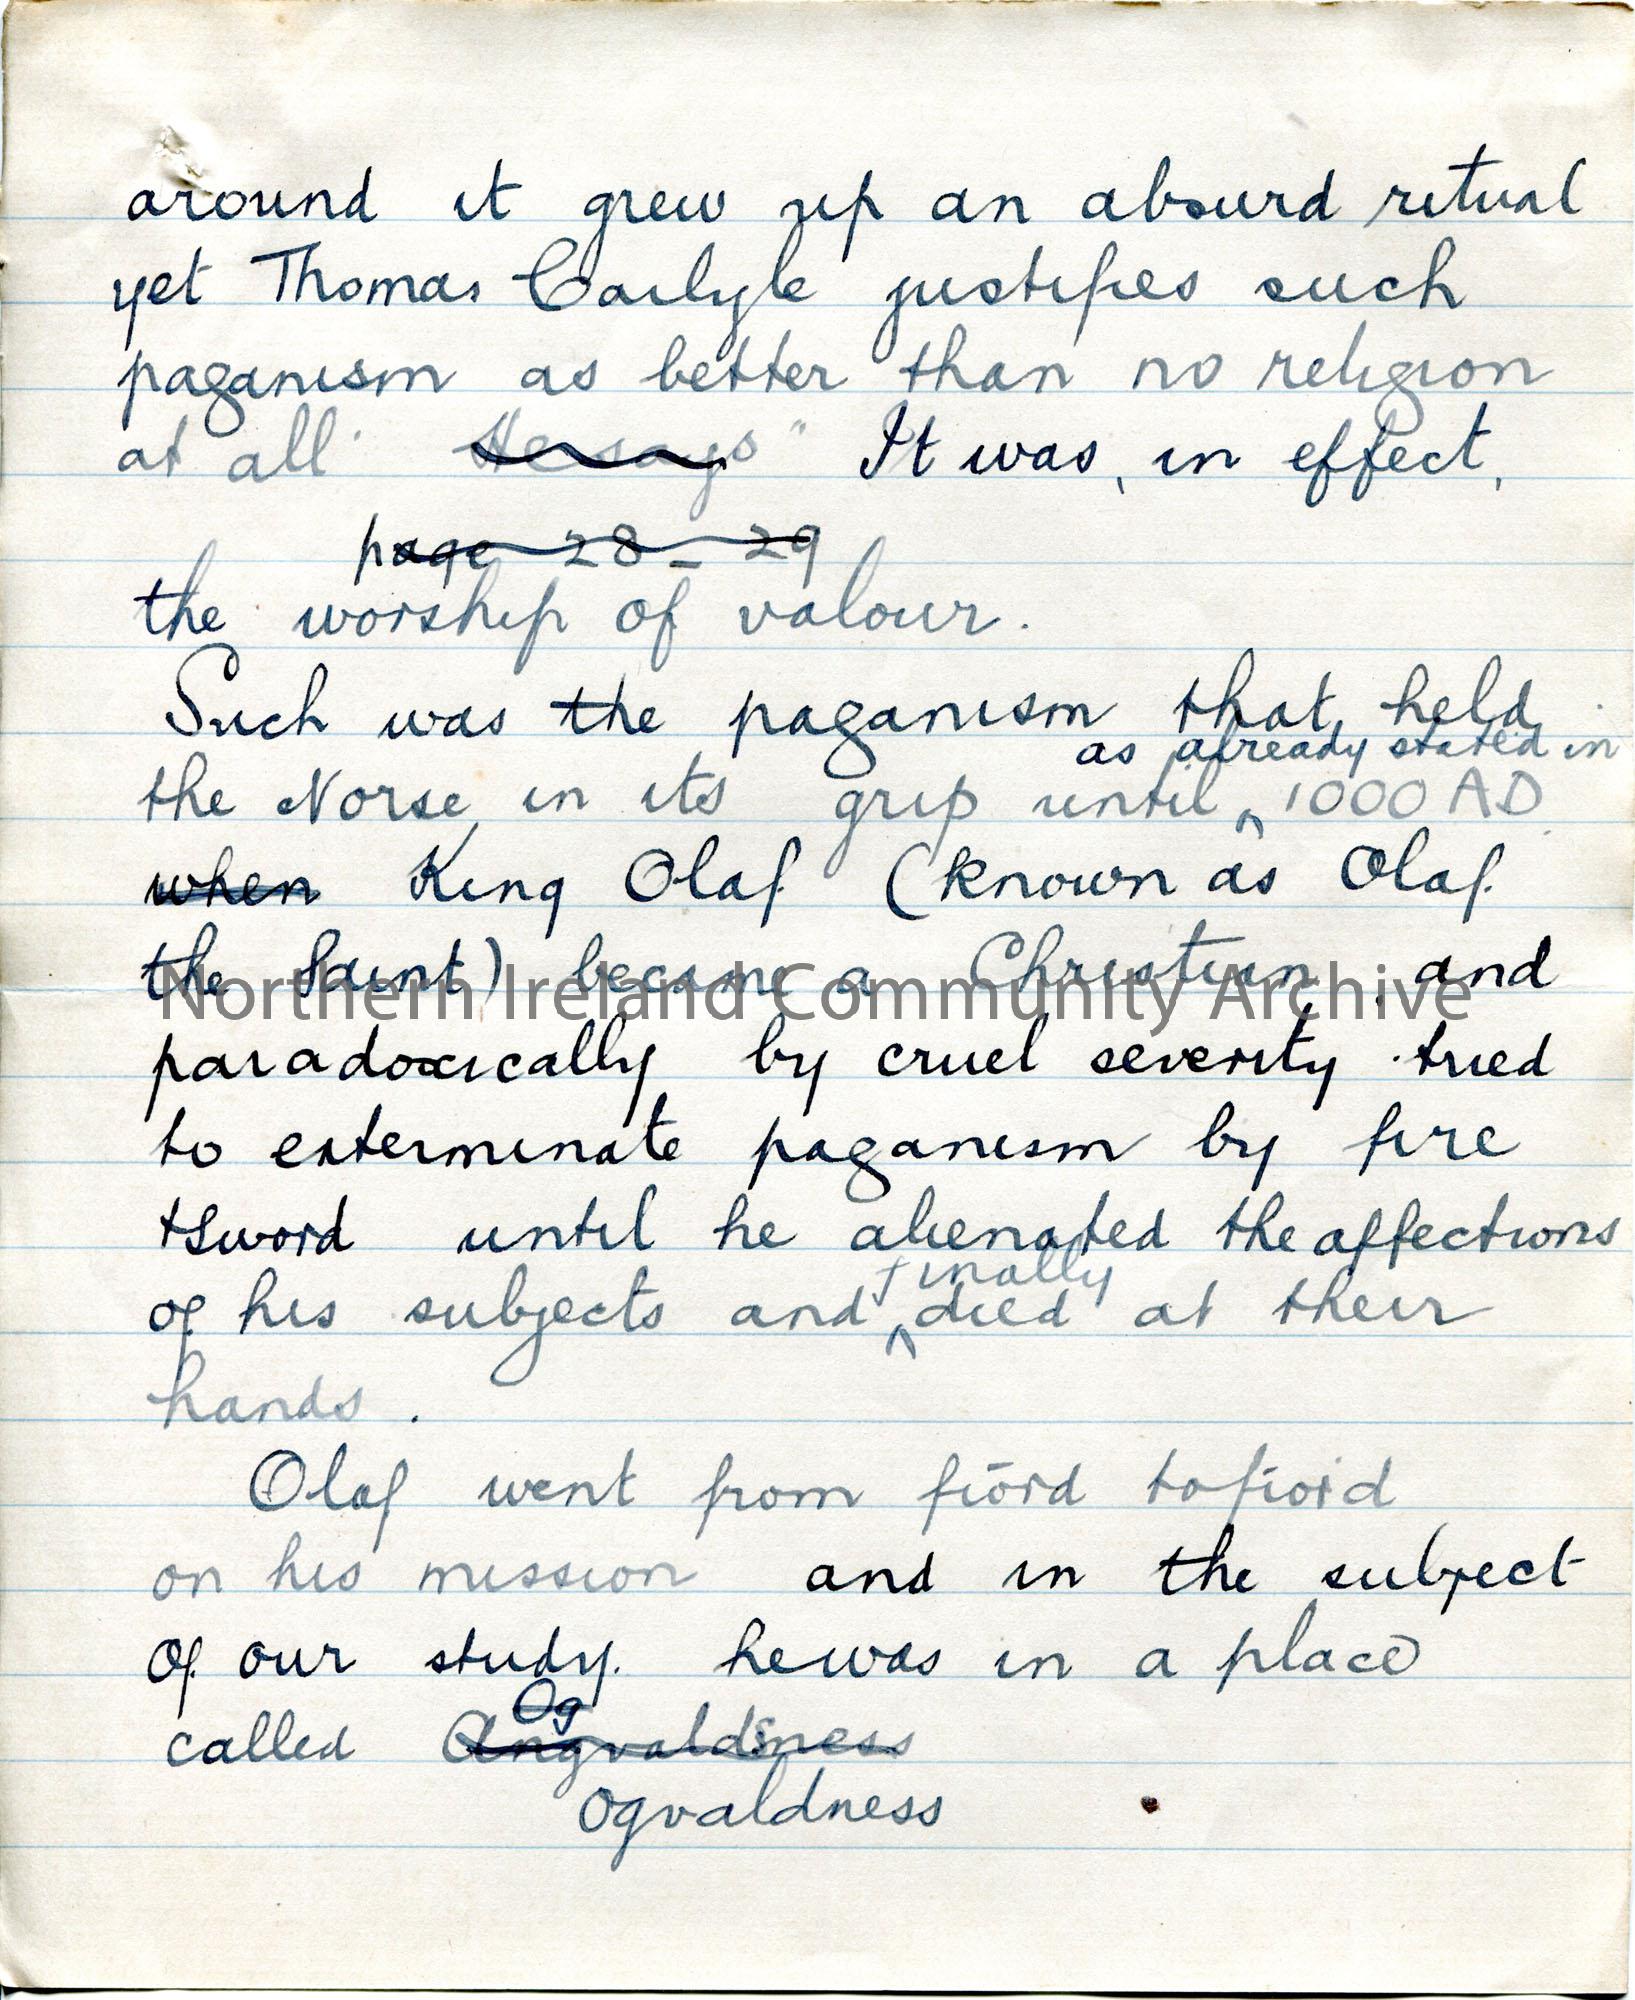 around it grew up an absurd ritual
yet Thomas Carlyle justifies such
paganism as better than no religion
at all. He says " It was, in effect,
page 28 - 29
the worship of valour.
Such was the paganism that held
as already stated in
the Norse, in its grip until ^ 1000 AD.
when King Olaf (known as Olaf
the Saint) became a Christian, and
Northern Ireland Community Archive
paradoxically by cruel severity tried
to exterminate paganism by fire
+ sword until he alienated the affections
finally
of his subjects and ^ died at their
hands.
Olaf went from fiord to fiord
on his mission and in the subject
of our study. he was in a place
Og
called Angvaldsness
Ogvaldness